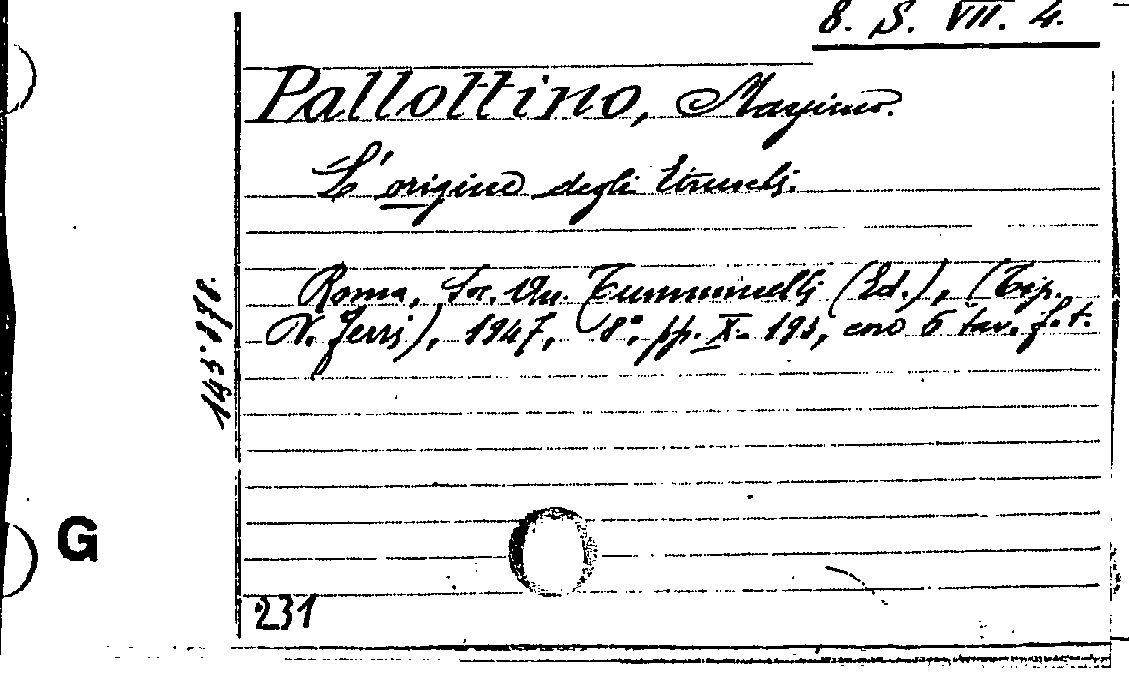 8. S. VII. 4.
Pallottino, Massimo.
L'origine degli Etruschi.
Roma, Soc. An. Tumminelli (Ed.), (Tip.
N. Ferri), 1947, 8°, pp. X-193, con 6 tav. f. t.
G
231